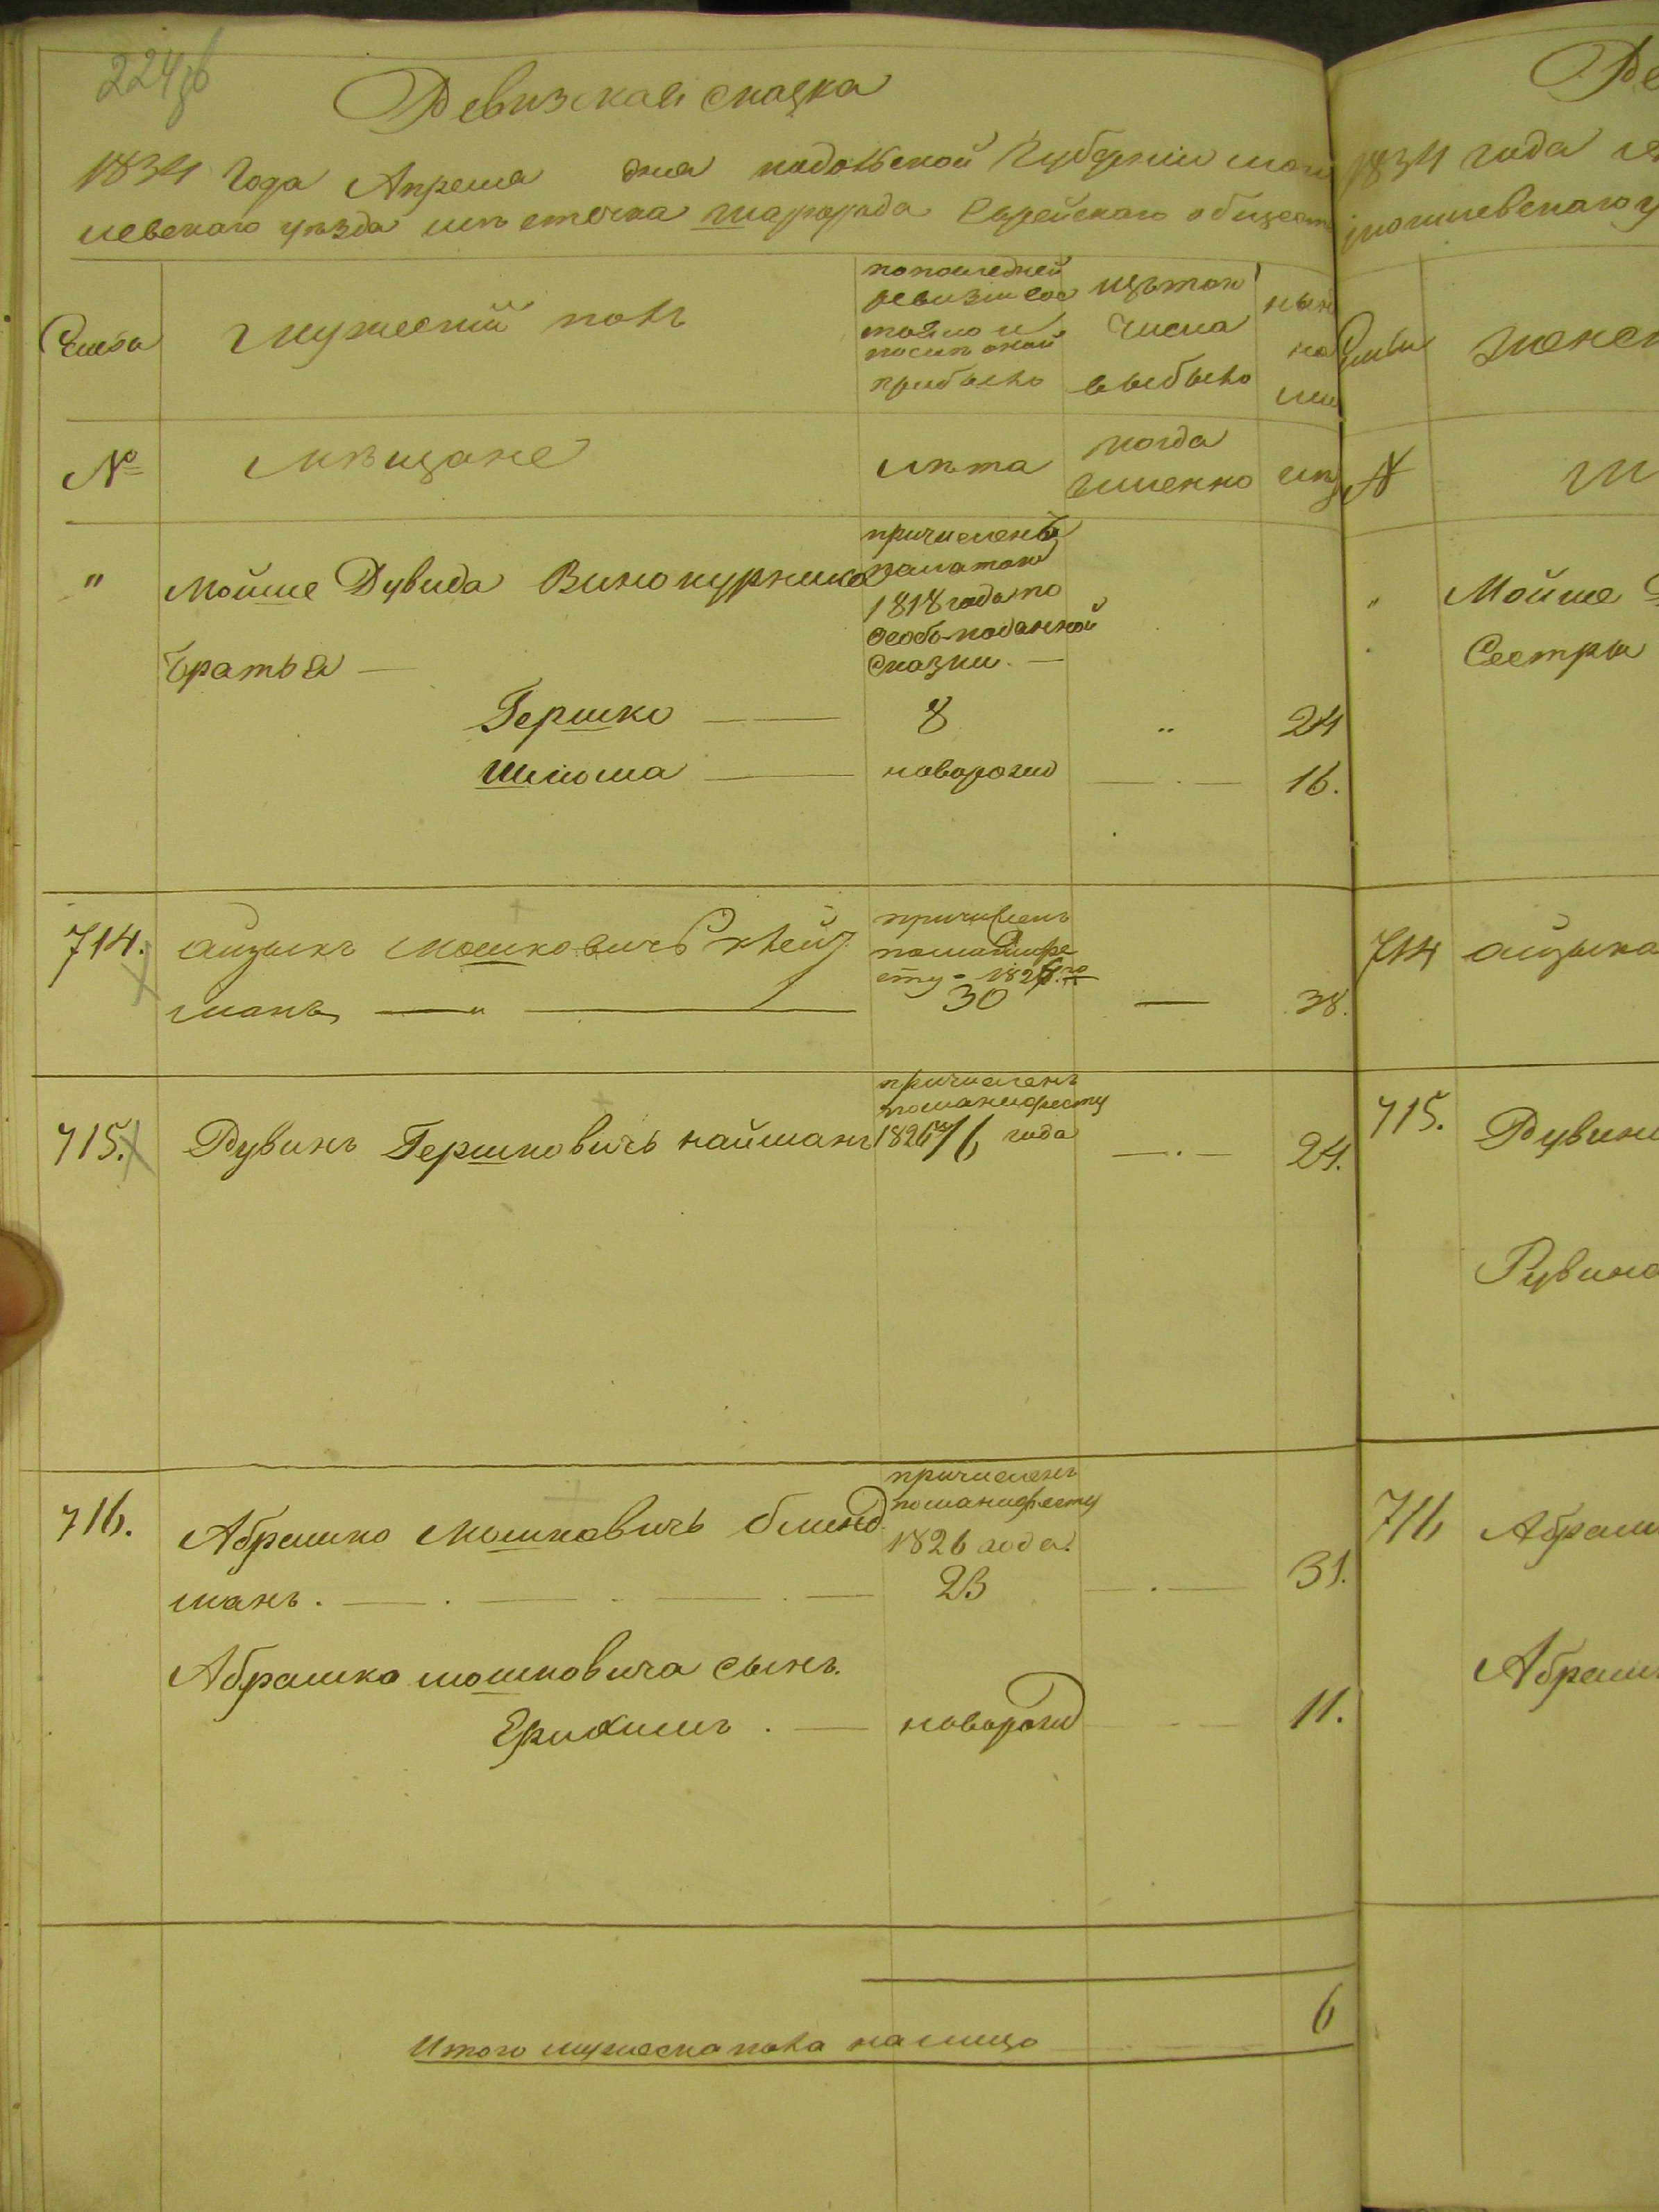 224об
Ревизская сказка
1834 года Апреля дня подольской Губернии моги
левскаго уѣзда мѣстечка шаргорода Еврейскаго общест
Семьи
мужеский полъ
по последней
ревизии сос
тояло и
после оной
прибыло
изъ того
числа
выбыло
нын
на
ли
№
мѣщане
лѣта
когда
именно
лѣ
"
Мойше Дувида Винокурника
причисленъ
палатою
1818 года по
особо поданной
сказки. —
братья —
Гершко —
8
"
24
Шлиома —
новорожд
16.
714.
айзыкъ Мошковичъ клейз
манъ — " —
причисленъ
по манифе
сту - 1826.го
30
—
38.
715.
Рувинъ Гершковичъ найманъ
причисленъ
по манифесту
1826 16 года
— . —
24.
716.
Абрашко Мошковичъ блинд
манъ. — . — . — . —
причисленъ
по манифесту
1826 года.
23
— . —
31.
Абрашка мошковича сынъ.
Ерихимъ . —
новорожд
11.
Итого мужеска пола налицо
6
Ре
1834 года
могилевскаго у
Семьи
женск
№
"
Мойше
Сестры
714
айзыка
715.
Рувин
Рувина
716
Абраш
Абраш